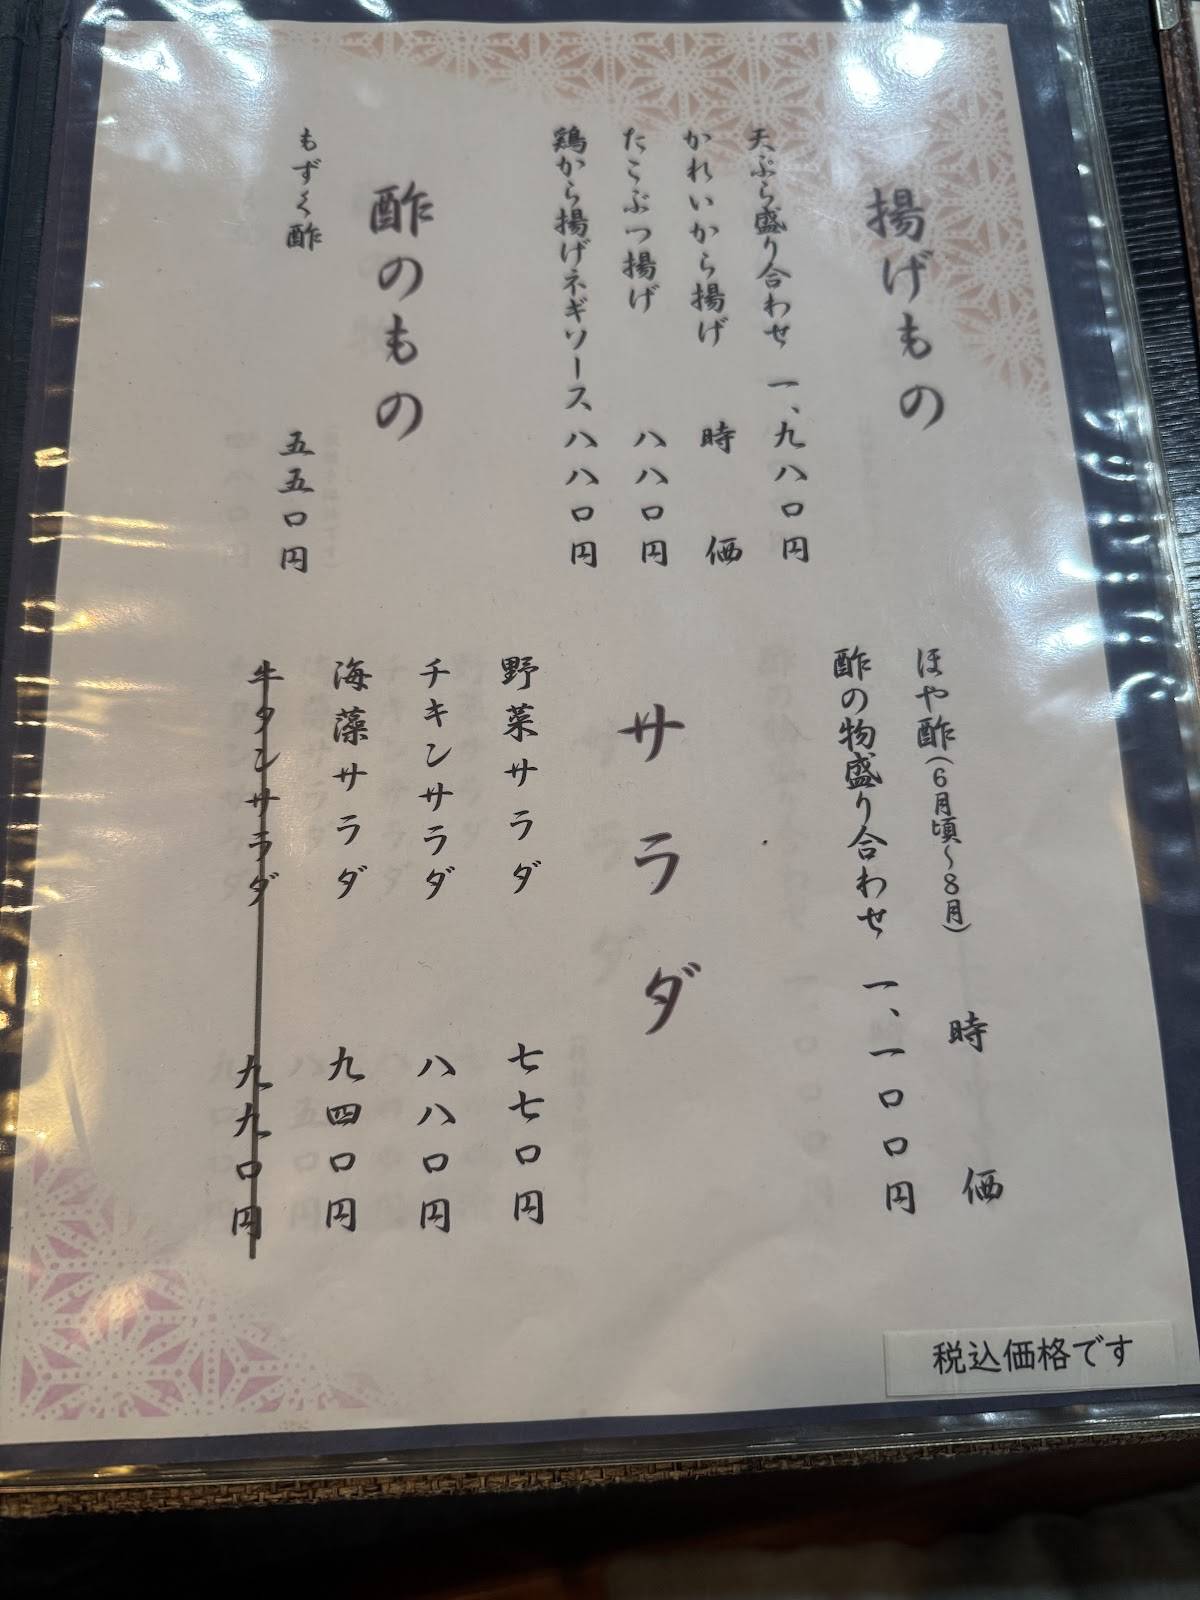 揚げもの
天ぷら盛り合わせ 一、九八〇円
かれいから揚げ 時価
たこぶつ揚げ 八八〇円
鶏から揚げネギソース 八八〇円
酢のもの
もずく酢 五五〇円
ほや酢(6月頃~8月) 時価
酢の物盛り合わせ 一、一〇〇円
サラダ
野菜サラダ 七七〇円
チキンサラダ 八八〇円
海藻サラダ 九四〇円
牛タンサラダ 九九〇円
税込価格です